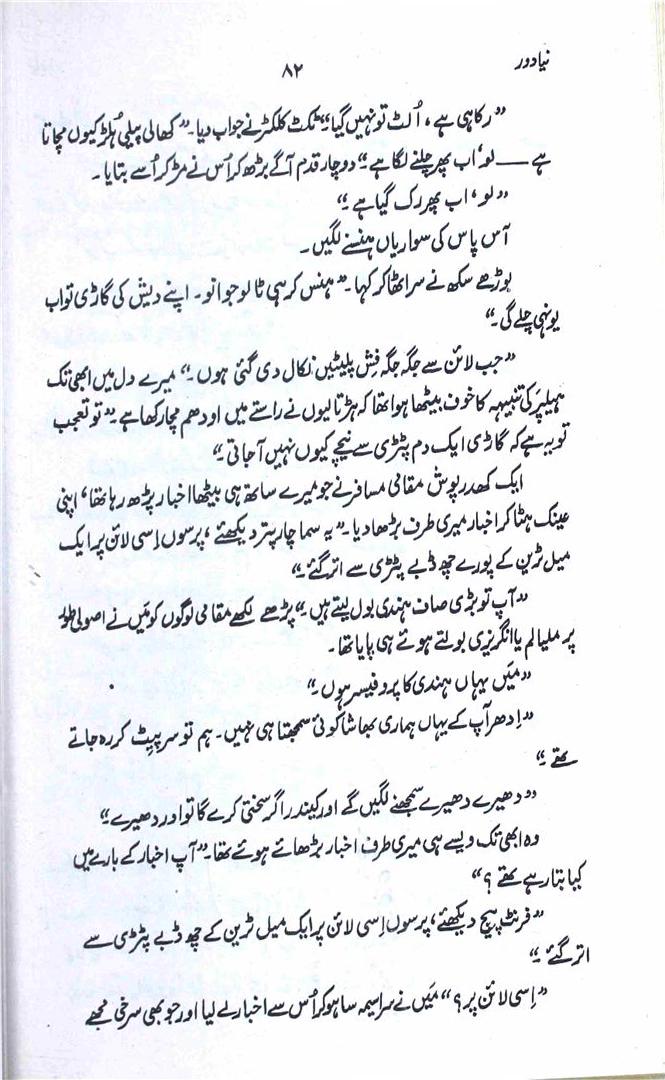 نیا دور
۸۲
”رکا ہی ہے، اُلٹ تو نہیں گیا۔“ ٹکٹ کلکٹر نے جواب دیا۔ ”کھالی پیلی ہُلڑ کیوں مچاتا
ہے —— لو، اب پھر چلنے لگا ہے۔“ دو چار قدم آگے بڑھ کر اُس نے مڑ کر اُسے بتایا۔
”لو، اب پھر رک گیا ہے۔“
آس پاس کی سواریاں ہنسنے لگیں۔
بوڑھے سکھ نے سر اٹھا کر کہا۔ ”ہنس کر ہی ٹالو جوانو۔ اپنے دیش کی گاڑی تو اب
یونہی چلے گی۔“
”جب لائن سے جگہ جگہ فِش پلیٹیں نکال دی گئی ہوں۔“ میرے دل میں ابھی تک
ہیلپر کی تنبیہہ کا خوف بیٹھا ہوا تھا کہ ہڑتالیوں نے راستے میں اودھم مچا رکھا ہے۔ ”تو تعجب
تو یہ ہے کہ گاڑی ایک دم پٹڑی سے نیچے کیوں نہیں آ جاتی۔“
ایک کھدر پوش مقامی مسافر نے جو میرے ساتھ ہی بیٹھا اخبار پڑھ رہا تھا، اپنی
عینک ہٹا کر اخبار میری طرف بڑھا دیا۔ ”یہ سماچار پتر دیکھئے، پرسوں اِسی لائن پر ایک
میل ٹرین کے پورے چھ ڈبے پٹڑی سے اتر گئے۔“
”آپ تو بڑی صاف ہندی بول لیتے ہیں۔“ پڑھے لکھے مقامی لوگوں کو میں نے اصولی طور
پر ملیالم یا انگریزی بولتے ہوئے ہی پایا تھا۔
”مَیں یہاں ہندی کا پروفیسر ہوں۔“
”اِدھر آپ کے یہاں ہماری بھاشا کوئی سمجھتا ہی نہیں۔ ہم تو سر پیٹ کر رہ جاتے
تھے۔“
”دھیرے دھیرے سمجھنے لگیں گے اور کیندر اگر سختی کرے گا تو اور دھیرے۔“
وہ ابھی تک ویسے ہی میری طرف اخبار بڑھائے ہوئے تھا۔ ”آپ اخبار کے بارے میں
کیا بتا رہے تھے؟“
”فرنٹ پیج دیکھئے، پرسوں اِسی لائن پر ایک میل ٹرین کے چھ ڈبے پٹڑی سے
اتر گئے۔“
”اِسی لائن پر؟“ مَیں نے سراسیمہ سا ہو کر اُس سے اخبار لے لیا اور جو بھی سرخی مجھے